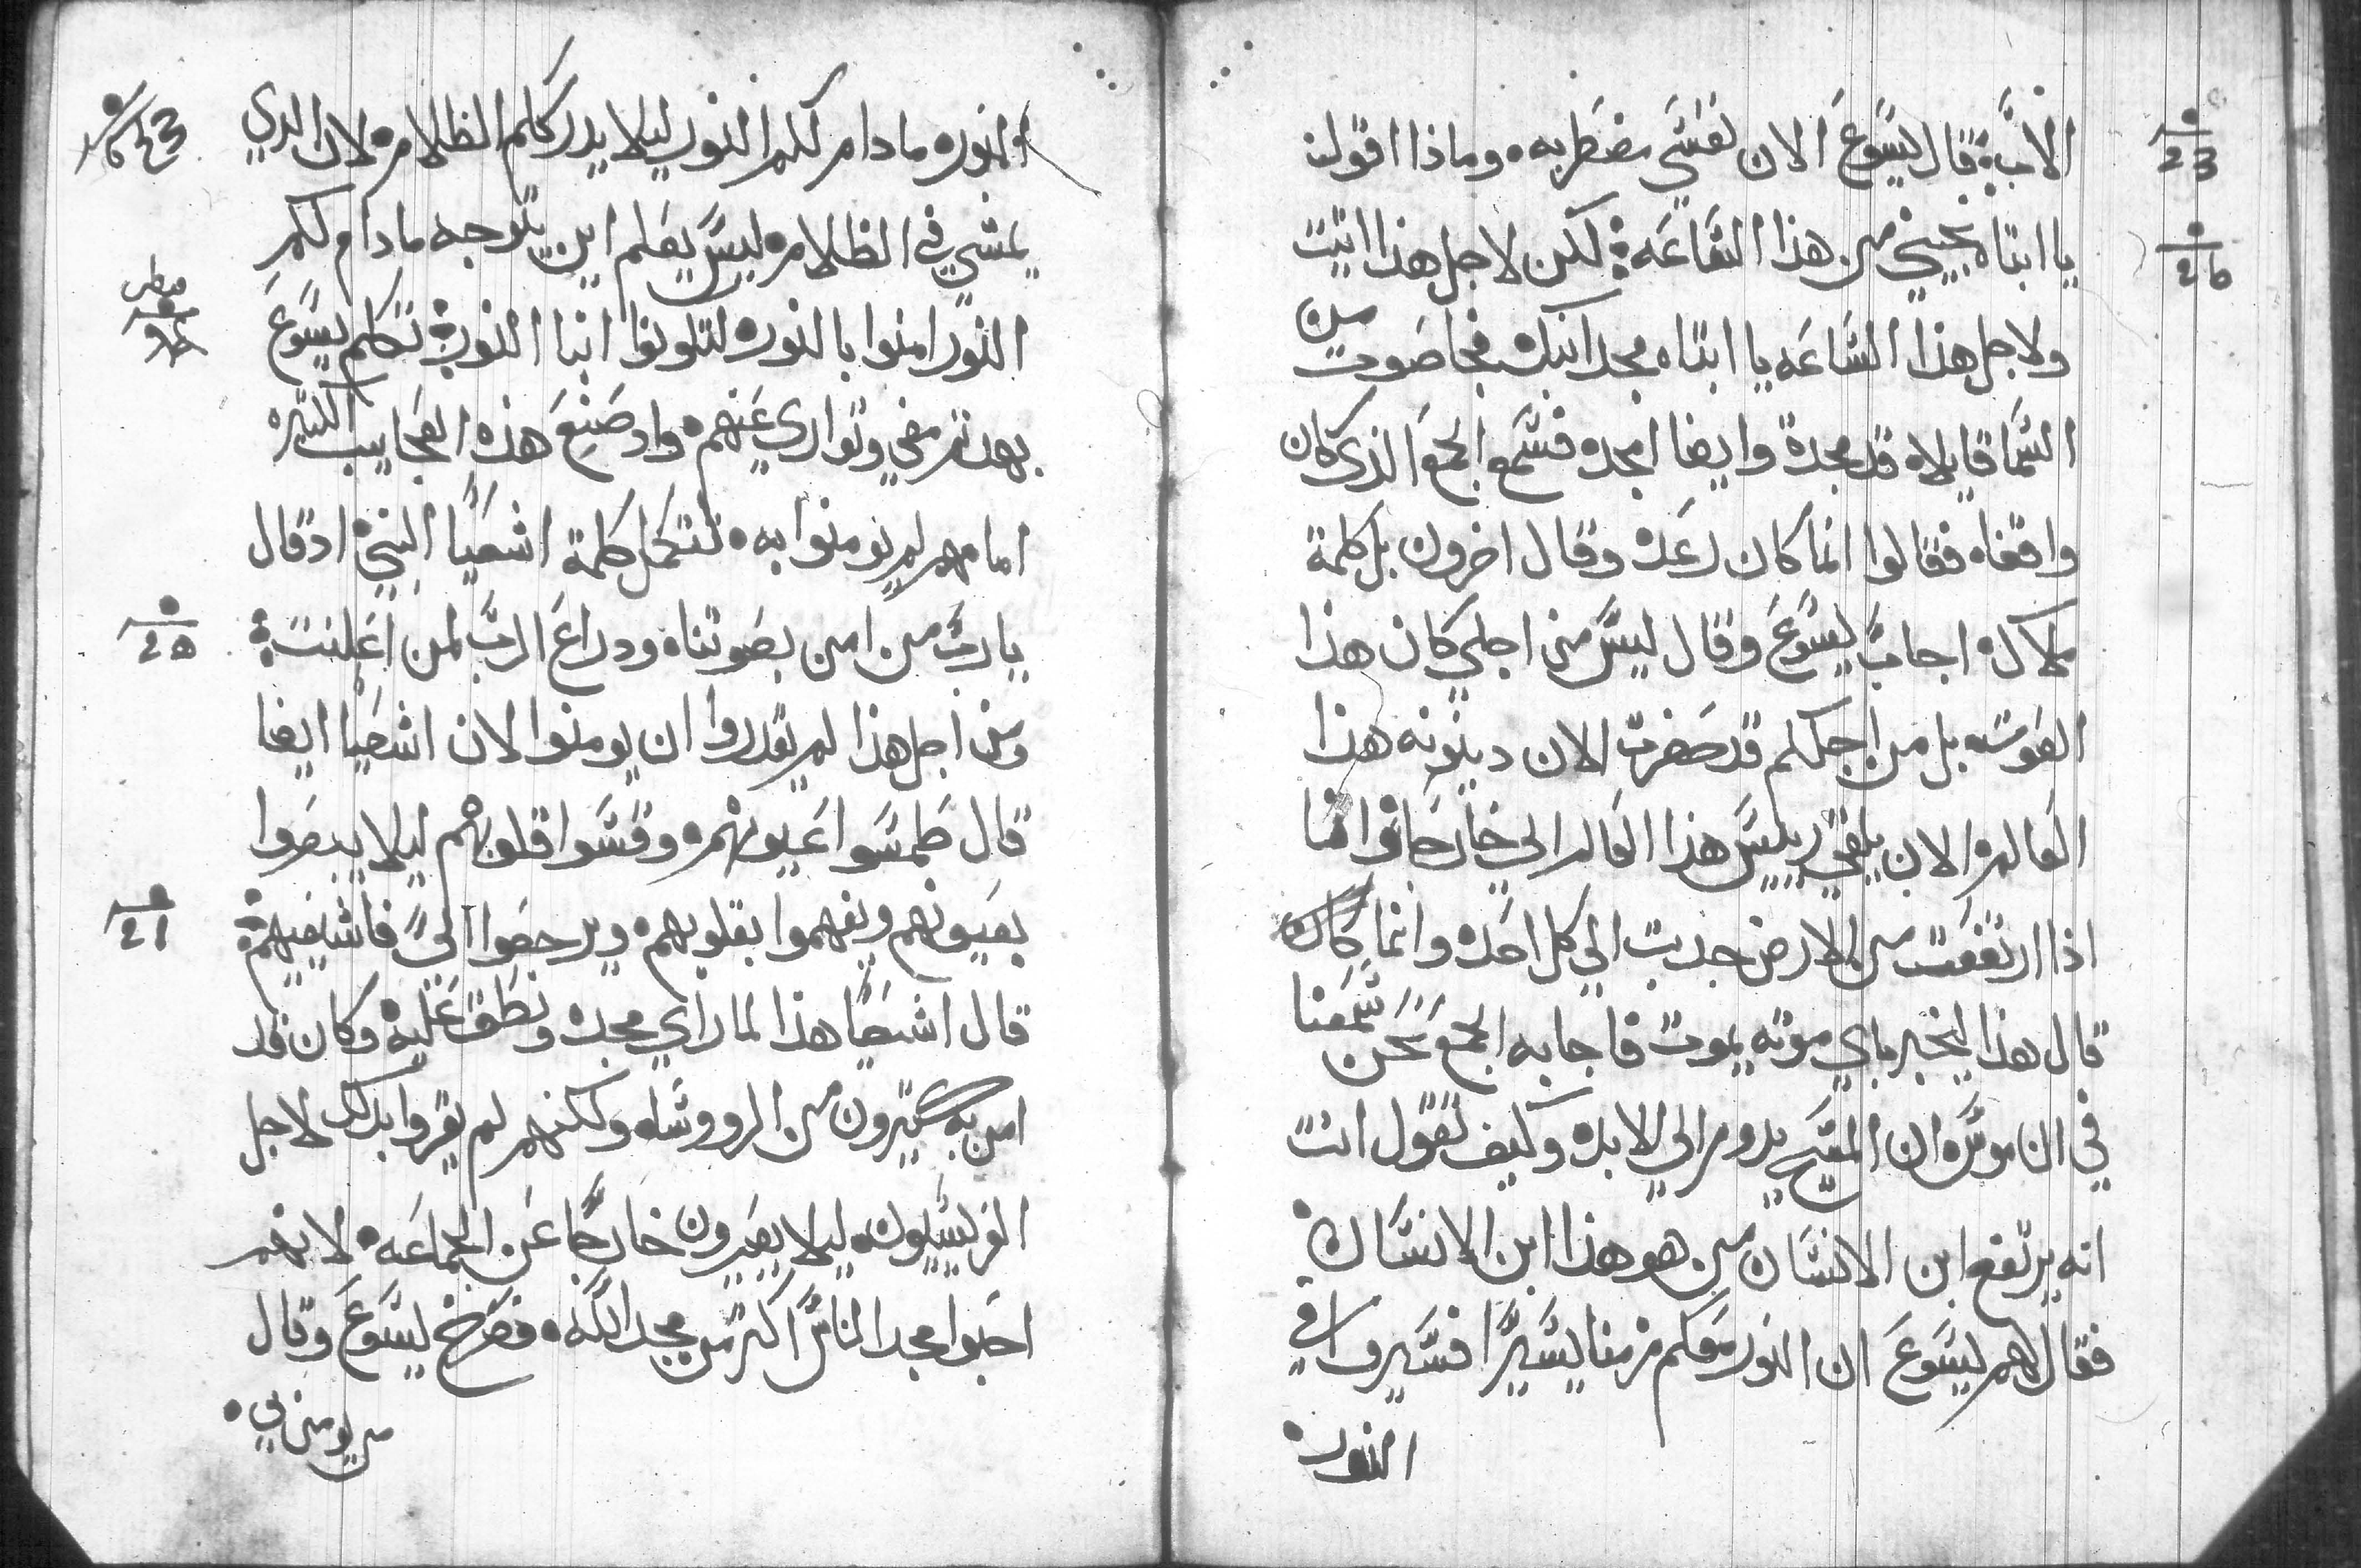 الاب قال يسوع الان نفسي مضطربه وماذا اقول
يا ابتاه نجيني من هذا الساعه لكن لاجل هذا اتيت
ولاجل هذا الساعه يا ابتاه مجد ابنك فجا صوت من
السما قايلا قد مجدة وايضا امجده فسمع الجمع الذي كان
واقفا فقالوا انما كان رعد وقال اخرون بل كلمة
ملاك اجاب يسوع وقال ليس من اجلي كان هذا
الصوت بل من اجلكم قد حضرت الان دينونه هذا
العالم الان يلقي رييس هذا العالم الي خارجا وانا
اذا ارتفعت من الارض جدبت الي كل احد وانما كان
قال هذا ليخبر باي موته يموت فاجابه الجمع نحن سمعنا
في الناموس ان المسيح يدوم الي الابد وكيف تقول انت
انه يرتفع ابن الانسان من هو هذا ابن الانسان
فقال لهم يسوع ان النور معكم زمنا يسيرا فسيروا في
النور
23
26
النور مادام لكم النور ليلا يدرككم الظلام لان الدي
يمشي في الظلام ليس يعلم اين يتوجه مادام لكم
النور امنوا بالنور لتكونوا ابنا النور تكلم يسوع
بهدا ثم مضي وتواري عنهم واد صنع هذه العجايب الكتيره
امامهم لم يومنوا به لتكمل كلمة اشعيا النبي اد قال
يارب من امن بصوتنا ودراع الرب لمن اعلنت
ومن اجل هذا لم يقدروا ان يومنوا لان اشعيا ايضا
قال طمسوا عيونهم وقسوا قلوبهم ليلا يبصروا
بعيونهم ويفهموا بقلوبهم ويرجعوا الي فاشفيهم
قال اشعيا هذا لما راي مجده ونطق عليه وكان قد
امن به كتيرون من الرووسا ولكنهم لم يقروا بدلك لاجل
الفريسيون ليلا يصيرون خارجا عن الجماعه لانهم
احبوا مجد الناس اكتر من مجد الله فصرخ يسوع وقال
من يومن بي
21